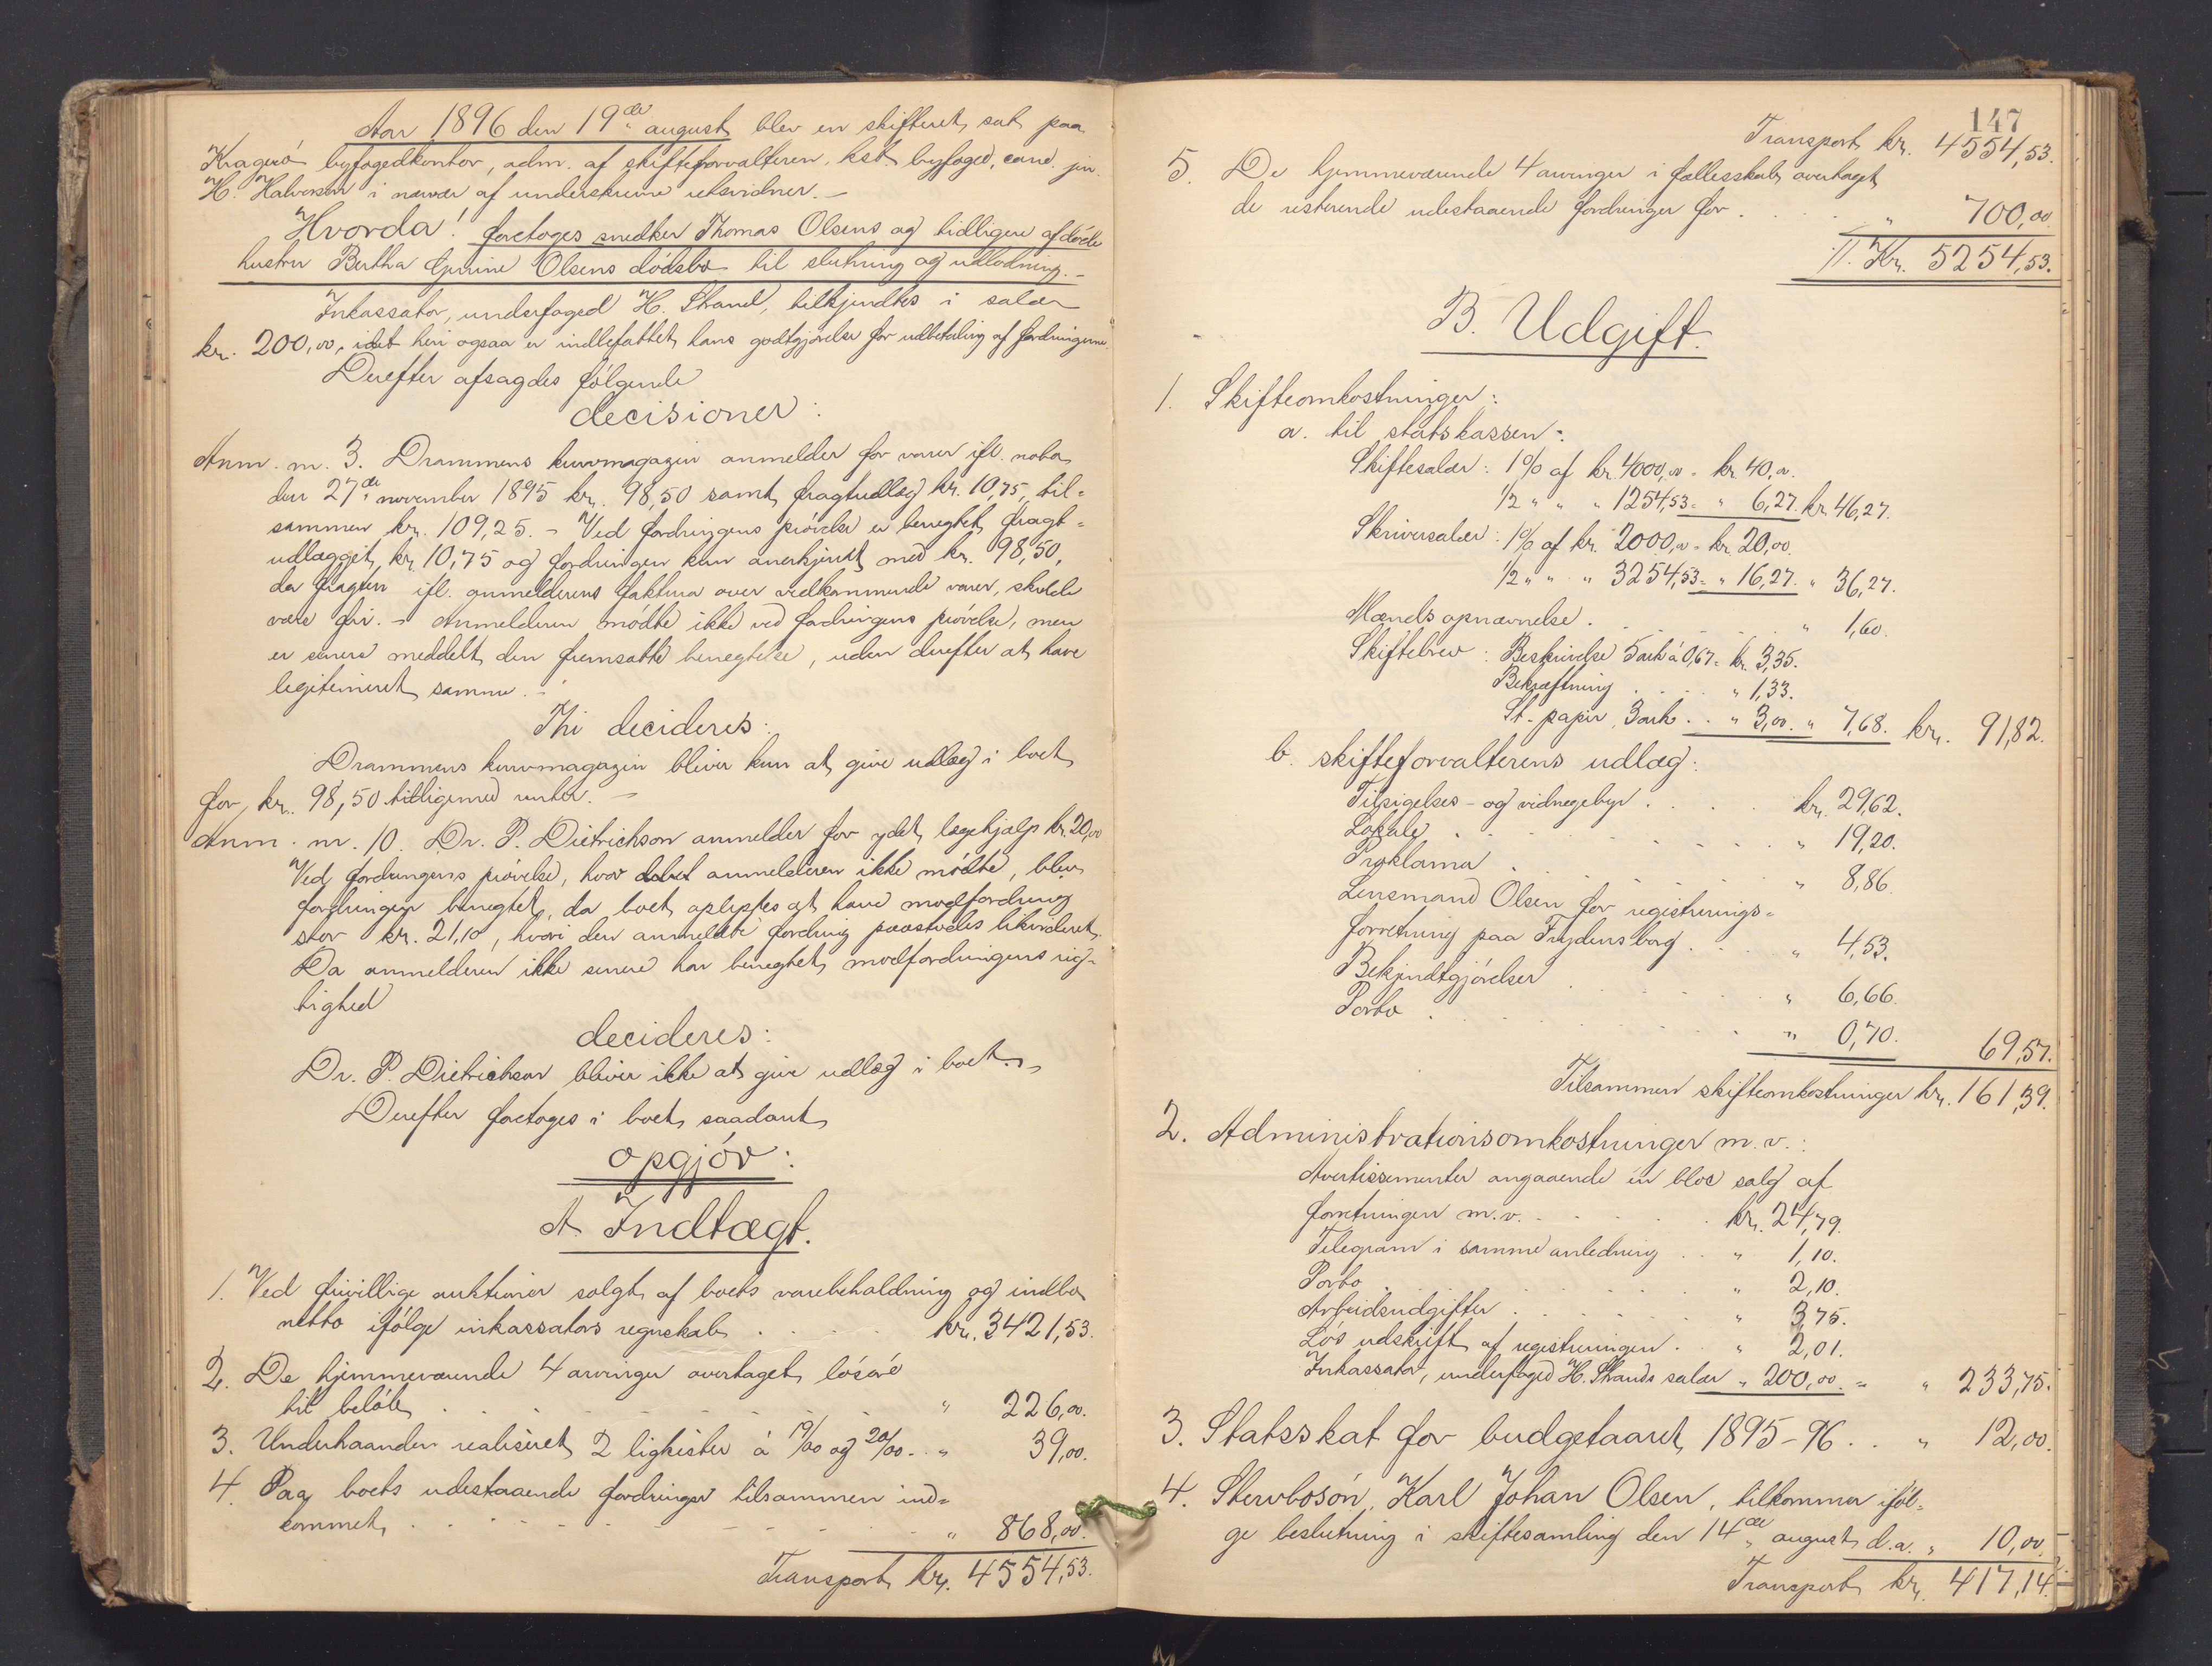 Aar 1896 den 19de august blev en skifteret sat paa
Kragerø byfogedkontor, adm. af skifteforvalteren, kst. byfoged, cand. jur.
H. Halvorsen i nærvær af underskrevne retsvidner. –
Hvorda! foretoges snedker Thomas Olsens og tidligere afdøde
hustru Bertha Olsens dødsbo til slutning og udlodning. –
Inkassator, underfoged H. Strand, tilkjendtes i salær
kr. 200,00, idet heri ogsaa er indbefattet hans godtgjørelse for udbetaling af fordringerne.
Derefter afsagdes følgende
decisioner:
Anm. nr. 3. Drammens kurvmagazin anmelder for varer ifl. nota
den 27de november 1895 kr. 98,50 samt fragtudlæg kr. 10,75, til-
sammen kr. 109,25. – Ved fordringens prøvelse er benegtet fragt-
udlægget kr. 10,75 og fordringen kun anerkjendt med kr. 98,50,
da fragten ifl. anmelderens faktura over vedkommende varer, skulde
være fri. – Anmelderen mødte ikke ved fordringens prøvelse, men
er senere meddelt den fremsatte benegtelse, uden derefter at have
legitimeret samme. –
Thi decideres:
Drammens kurvmagazin bliver kun at give udlæg i boet
for kr. 98,50 tilligemed renter. –
Anm. nr. 10. Dr. P. Dietrichson anmelder for ydet lægehjælp kr. 20,00
Ved fordringens prøvelse, hvor anmelderen ikke mødte, blev
fordringen benegtet, da boet oplystes at have modfordring
stor kr. 21,10, hvori den anmeldte fordring paastodes likvideret.
Da anmelderen ikke senere har benegtet modfordringens rig-
tighed
decideres:
Dr. P. Dietrichson bliver ikke at give udlæg i boet. –
Derefter foretoges i boet saadant
opgjør:
A. Indtægt.
1. Ved frivillige auktioner solgt af boets varebeholdning og indbo
netto ifølge inkassators regnskab . . . . kr. 3421,53.
2. De hjemmeværende 4 arvinger overtaget løsøre
til beløb . . . . . . . . " 226,00.
3. Underhaanden realiseret 2 ligkister á 19/00 og 20/00 . . " 39,00.
4. Paa boets udestaaende fordringer tilsammen ind-
kommet . . . . . . . . " 868,00.
Transport kr. 4554,53.
147
Transport kr. 4554,53.
5. De hjemmeværende 4 arvinger i fællesskab overtaget
de resterende udestaaende fordringer for . . . " 700,00
://: Kr. 5254,53.
B. Udgift.
1. Skifteomkostninger:
a. til statskassen:
Skiftesalær: 1% af kr. 4000,00 = kr. 40,00.
1/2 " " " 1254,53 = " 6,27. kr. 46,27.
Skriversalær: 1% af kr. 2000,00 = kr. 20,00.
1/2 " " " 3254,53 = " 16,27. " 36,27.
Mænds opnævnelse . . . . . " 1,60.
Skiftebrev: Beskrivelse 5 ark á 0,67 = kr. 3,35.
Bekræftning . . . . " 1,33.
St. papir, 3 ark . . " 3,00. " 7,68. kr. 91,82.
b. skifteforvalterens udlæg:
Tilsigelses- og vidnegebyr . . . . kr. 29,62.
Lokale . . . . . . . " 19,20.
Proklama . . . . . . " 8,86.
Lensmand Olsen for registrerings-
forretning paa Frydensborg . . . " 4,53.
Bekjendtgjørelser . . . . . " 6,66.
Porto . . . . . . . . " 0,70. 69,57.
Tilsammen skifteomkostninger kr. 161,39.
2. Administrationsomkostninger m.v.:
Avertissementer angaaende en bloc salg af
forretningen m.v. . . . . . kr. 24,79.
Telegram i samme anledning . . " 1,10.
Porto . . . . . . . " 2,10.
Arbeidsudgifter . . . . . " 3,75.
Løs udskrift af registreringen . . " 2,01.
Inkassator, underfoged H. Strands salær " 200,00. = " 233,75.
3. Statsskat for budgetaaret 1895-96 . . " 12,00.
4. Stervbosøn, Karl Johan Olsen, tilkommer iføl-
ge beslutning i skiftesamling den 14de august d.a. " 10,00
Transport kr. 417,14.